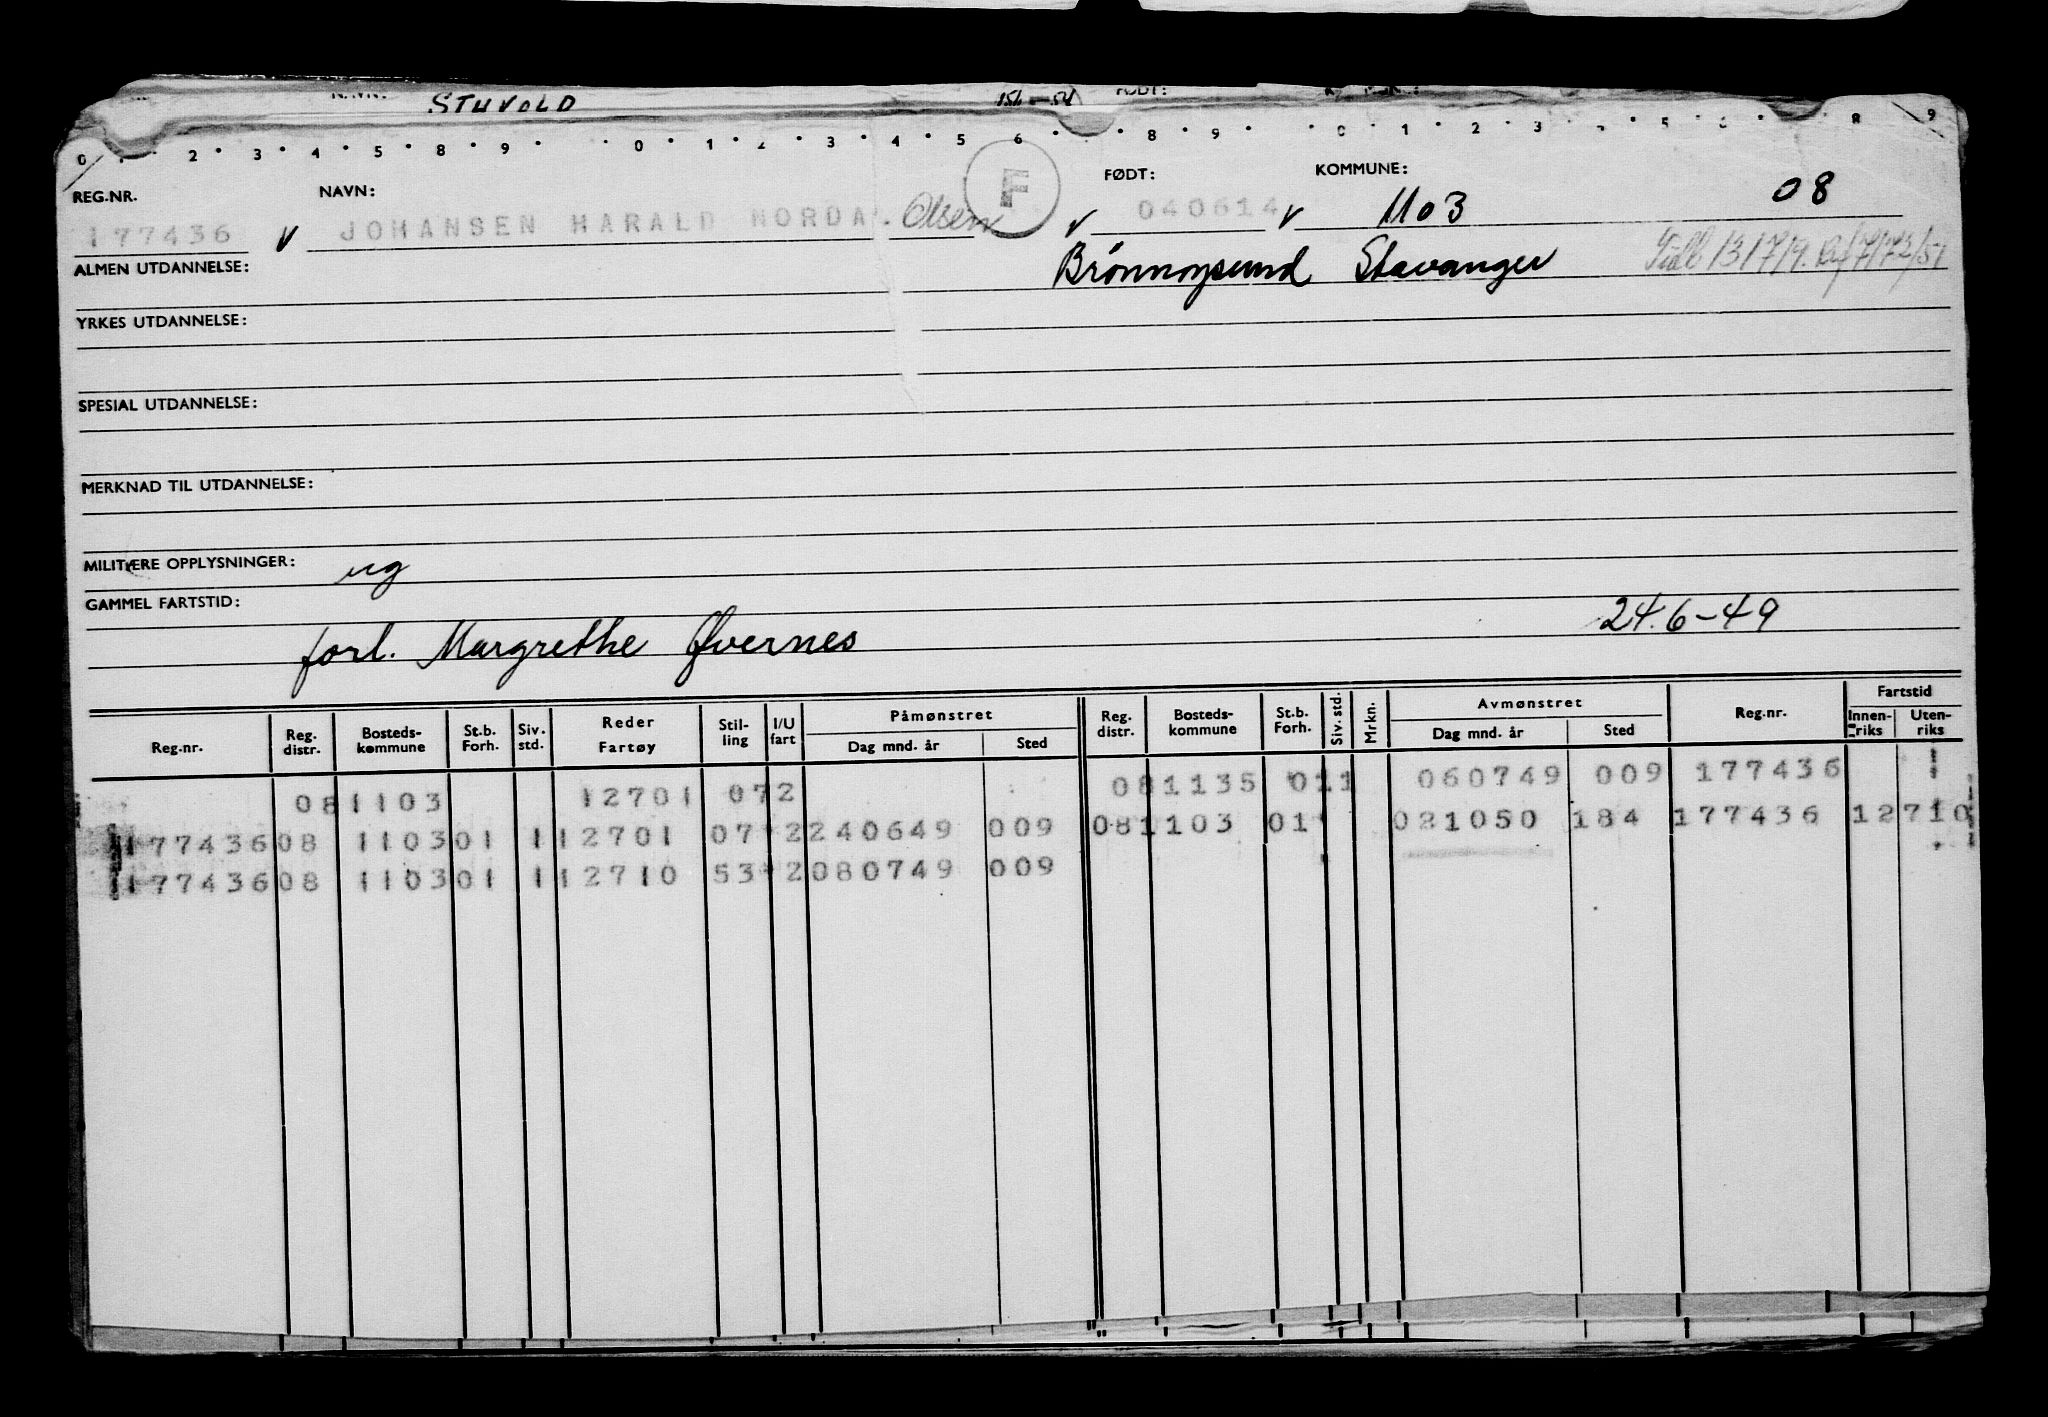 STUVOLD
REG.NR. NAVN: FØDT: KOMMUNE: 08
177436 V JOHANSEN HARALD NORDA. Olsen F V 040614 V 1103
ALMEN UTDANNELSE: Brönnøysund Stavanger
YRKES UTDANNELSE:
SPESIAL UTDANNELSE:
MERKNAD TIL UTDANNELSE:
MILITÆRE OPPLYSNINGER: ug
GAMMEL FARTSTID:
forl. Margrethe Øvernes 24.6-49
Reg.nr. Reg. distr. Bosteds-kommune St.b. Forh. Siv. std. Reder Fartøy Stil-ling I/U fart Påmønstret Dag mnd. år Sted Reg. distr. Bosteds-kommune St.b. Forh. Siv. std. Mrkn. Avmønstret Dag mnd. år Sted Reg.nr. Fartstid Innen-riks Uten-riks
08 1103 12701 07 2 08 1135 01 1 060749 009 177436 1
177436 08 1103 01 1 12701 07 2 240649 009 08 1103 01 021050 184 177436 12710
177436 08 1103 01 1 12710 53 2 080749 009